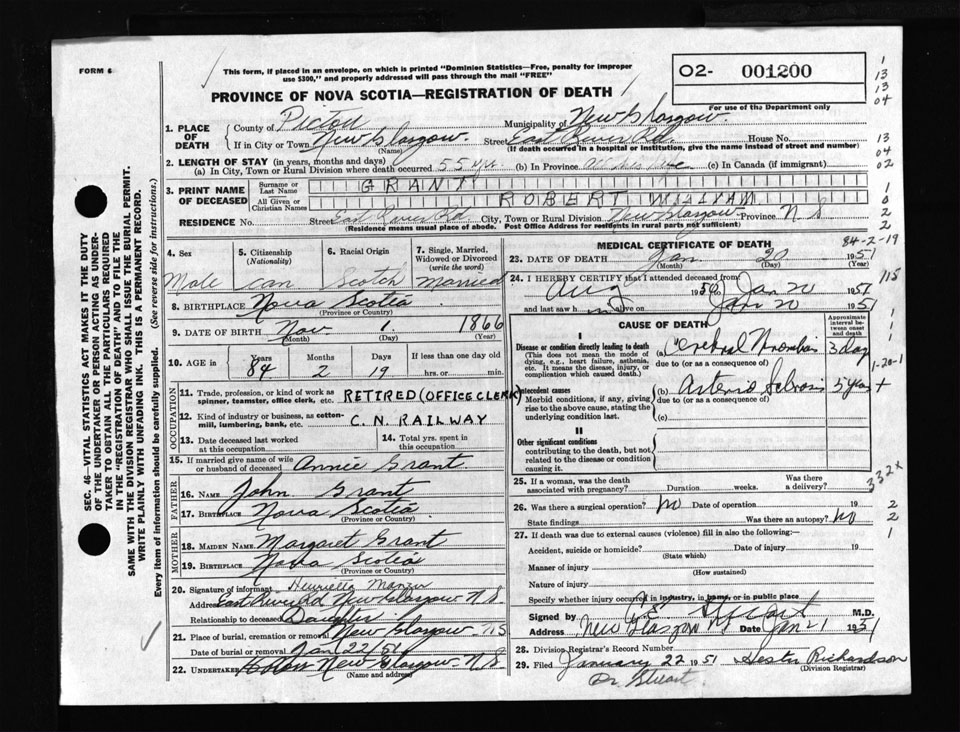 FORM 6
This form, if placed in an envelope, on which is printed "Dominion Statistics—Free, penalty for improper
use $300," and properly addressed will pass through the mail "FREE"
PROVINCE OF NOVA SCOTIA—REGISTRATION OF DEATH
02- 001200
For use of the Department only
1. PLACE OF DEATH
County of Pictou Municipality of New Glasgow
If in City or Town New Glasgow. Street East River Rd. House No.
(Name) (If death occurred in a hospital or institution, give the name instead of street and number)
2. LENGTH OF STAY (in years, months and days)
(a) In City, Town or Rural Division where death occurred 55 yrs. (b) In Province all his life (c) In Canada (if immigrant)
3. PRINT NAME OF DECEASED
Surname or Last Name GRANT
All Given or Christian Names ROBERT WILLIAM
RESIDENCE No. Street East River Rd City, Town or Rural Division New Glasgow Province N.S
(Residence means usual place of abode. Post Office Address for residents in rural parts not sufficient)
4. Sex Male
5. Citizenship (Nationality) Can
6. Racial Origin Scotch
7. Single, Married, Widowed or Divorced (write the word) Married
8. BIRTHPLACE Nova Scotia
(Province or Country)
9. DATE OF BIRTH Nov 1. 1866
(Month) (Day) (Year)
10. AGE in Years 84 Months 2 Days 19 If less than one day old hrs. or min.
OCCUPATION
11. Trade, profession, or kind of work as spinner, teamster, office clerk, etc. RETIRED (OFFICE CLERK)
12. Kind of industry or business, as cotton-mill, lumbering, bank, etc. C. N. RAILWAY
13. Date deceased last worked at this occupation
14. Total yrs. spent in this occupation
15. If married give name of wife or husband of deceased Annie Grant
FATHER
16. Name John Grant
17. Birthplace Nova Scotia
(Province or Country)
MOTHER
18. Maiden Name Margaret Grant
19. Birthplace Nova Scotia
(Province or Country)
20. Signature of informant Henrietta
Address East River Rd New Glasgow N.S.
Relationship to deceased Daughter
21. Place of burial, cremation or removal New Glasgow NS
Date of burial or removal Jan 22/51
22. Undertaker New Glasgow N.S
(Name and address)
MEDICAL CERTIFICATE OF DEATH
84-2-19
23. DATE OF DEATH Jan 20 1951
(Month) (Day) (Year)
24. I HEREBY CERTIFY that I attended deceased from
Aug 1950 to Jan 20 1951
and last saw h im alive on Jan 20 1951
CAUSE OF DEATH
Approximate interval between onset and death
I
Disease or condition directly leading to death
(This does not mean the mode of dying, e.g., heart failure, asthenia, etc. It means the disease, injury, or complication which caused death.)
(a) Cerebral Thrombosis 3 day
due to (or as a consequence of)
Antecedent causes
Morbid conditions, if any, giving rise to the above cause, stating the underlying condition last.
(b) Arterio Sclerosis 5 years +
due to (or as a consequence of)
(c)
II
Other significant conditions
contributing to the death, but not related to the disease or condition causing it.
25. If a woman, was the death associated with pregnancy? Duration weeks. Was there a delivery?
26. Was there a surgical operation? no Date of operation 19
State findings Was there an autopsy? no
27. If death was due to external causes (violence) fill in also the following:—
Accident, suicide or homicide? Date of injury 19
(State which)
Manner of injury
(How sustained)
Nature of injury
Specify whether injury occurred in industry, in home, or in public place
Signed by Stuart M.D.
Address New Glasgow Date Jan 21 1951
28. Division Registrar's Record Number
29. Filed January 22 1951 Hester Richardson
(Division Registrar)
Dr. Stuart
SEC. 46—VITAL STATISTICS ACT MAKES IT THE DUTY
OF THE UNDERTAKER OR PERSON ACTING AS UNDER-
TAKER TO OBTAIN ALL THE PARTICULARS REQUIRED
IN THE "REGISTRATION OF DEATH" AND TO FILE THE
SAME WITH THE DIVISION REGISTRAR WHO SHALL ISSUE THE BURIAL PERMIT.
WRITE PLAINLY WITH UNFADING INK. THIS IS A PERMANENT RECORD.
Every item of information should be carefully supplied. (See reverse side for instructions.)
1
13
13
04
13
04
02
1
0
2
2
115
1
1
1
1-20-1
332x
2
2
1